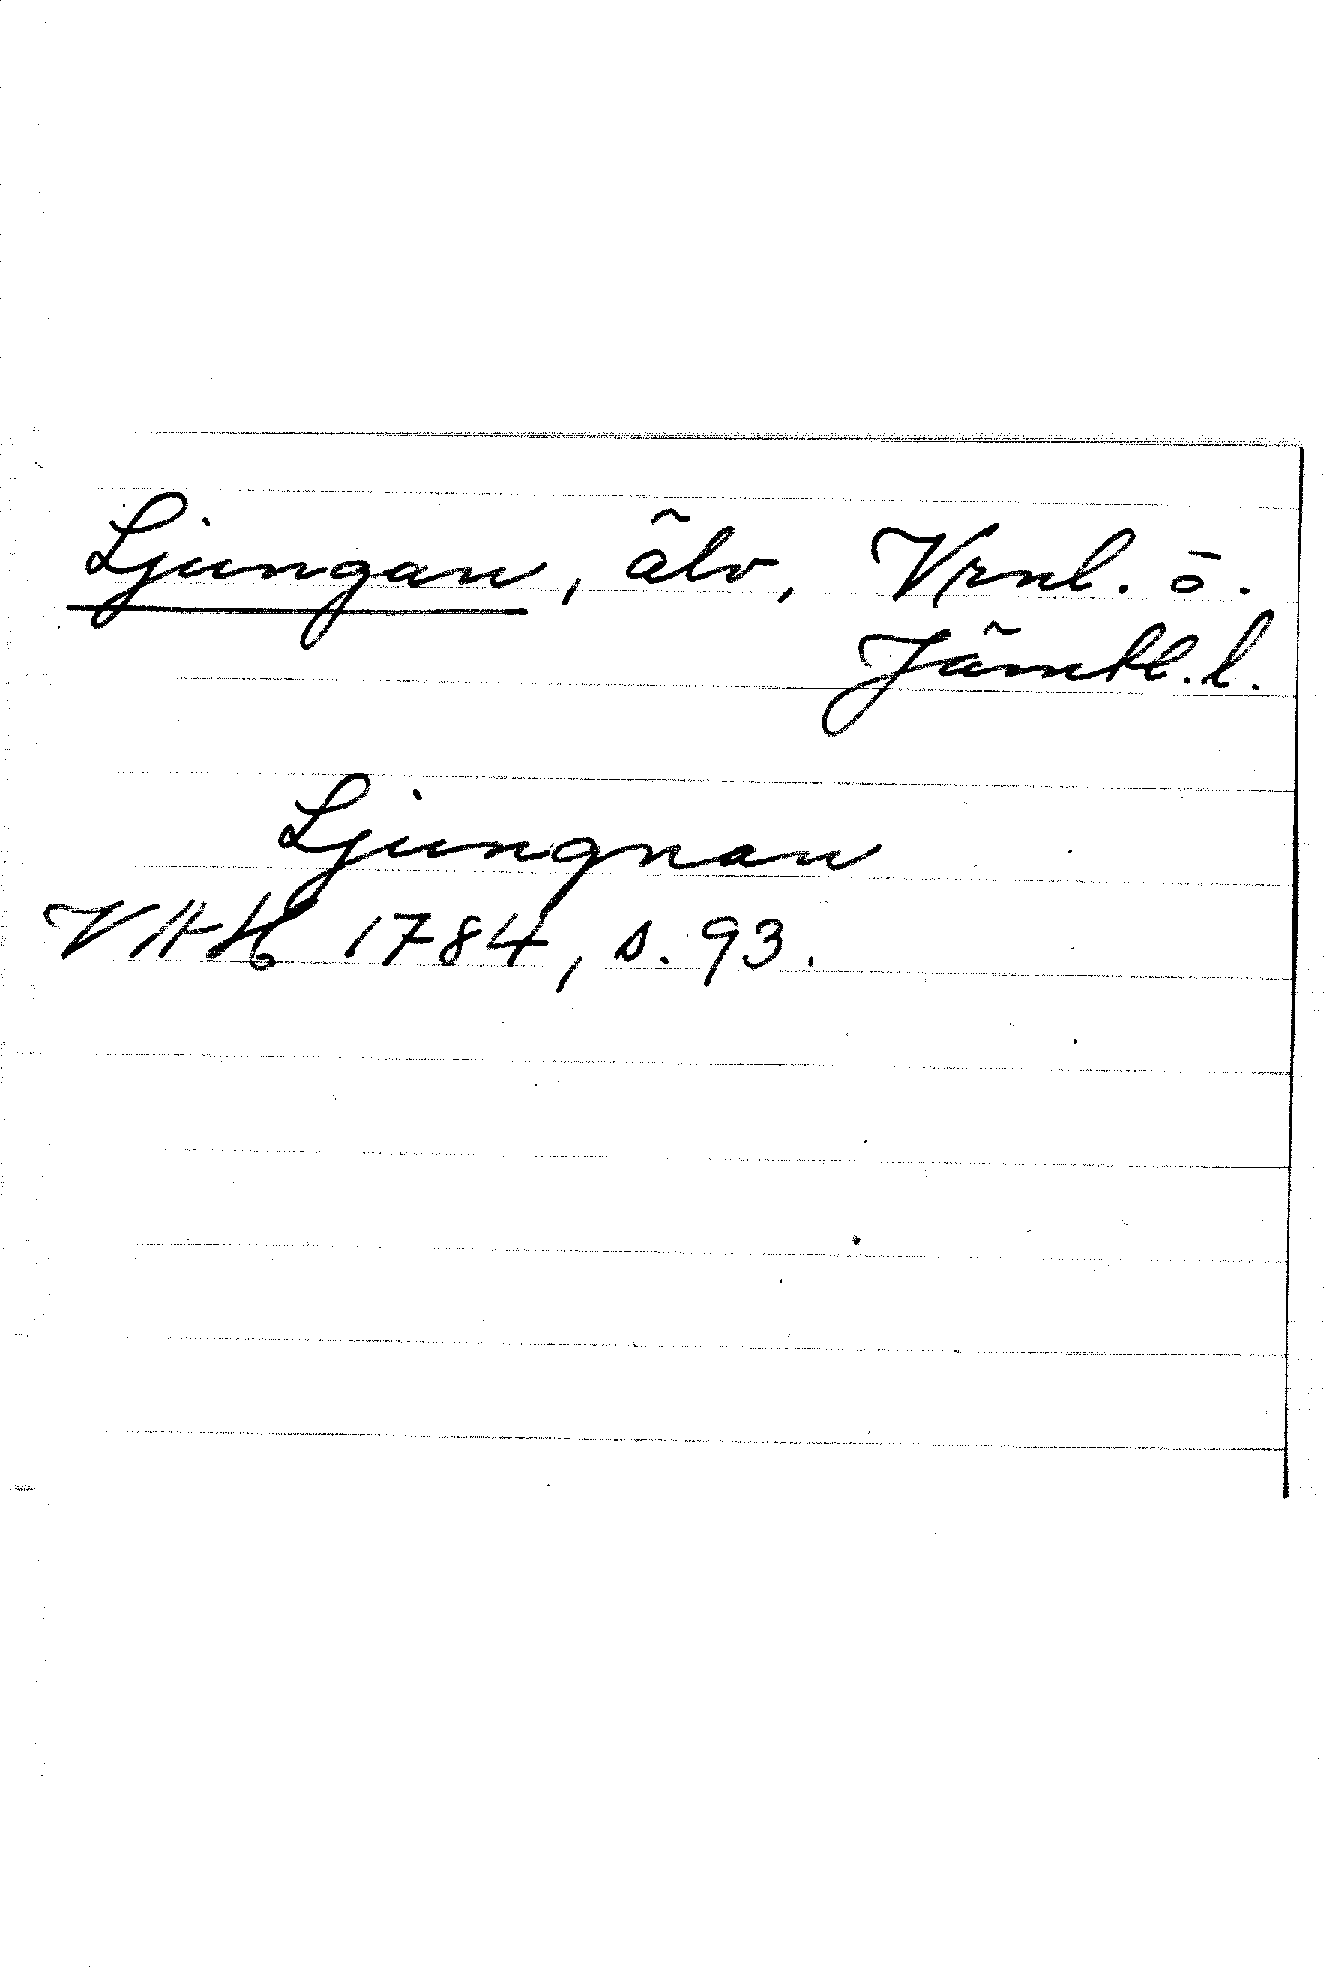 Ljungan, älv, Vrnl. o.
Jämtl. l.
Ljungnan
VAH 1784, s. 93.